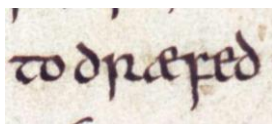 to dræfed